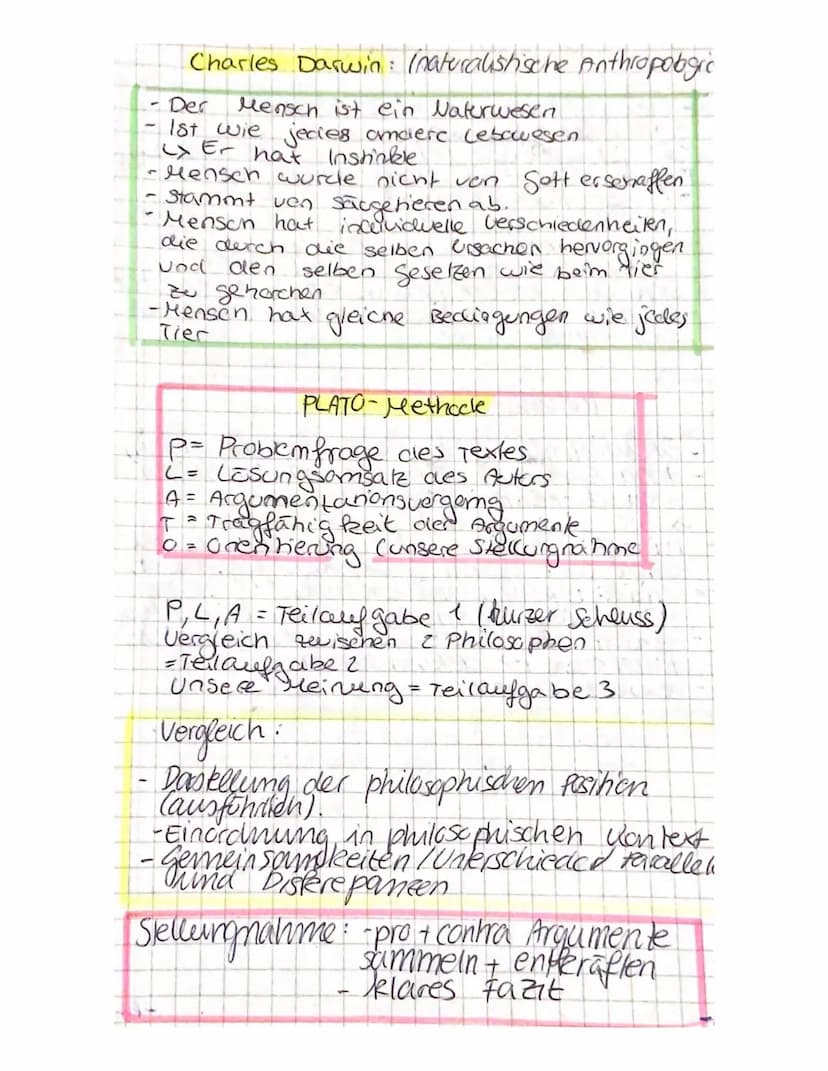 Charles Darwin: (naturalistische Anthropologie
- Der Mensch ist ein Naturwesen
- Ist wie jedes andere Lebewesen
↳ Er hat Instinkte
- Mensch wurde nicht von Gott erschaffen
- Stammt von Säugetieren ab.
- Mensch hat individuelle Verschiedenheiten,
die durch die selben Ursachen hervorgingen
und den selben Gesetzen wie beim Tier
zu gehorchen
- Mensch hat gleiche Bedingungen wie jedes
Tier
PLATO-Methode
P= Problemfrage des Textes
L= Lösungsansatz des Autors
A= Argumentationsvorgang
T = Tragfähigkeit der Argumente
O = Orientierung (unsere Stellungnahme
P, L, A = Teilaufgabe 1 (kurzer Schluss)
Vergleich zwischen 2 Philosophen
=Teilaufgabe 2
Unsere Meinung = Teilaufgabe 3
Vergleich:
- Darstellung der philosophischen Position
(ausführlich).
- Einordnung in philosophischen Kontext
- Gemeinsamkeiten / Unterschiede / Parallelen
und Diskrepanzen
Stellungnahme: - pro + contra Argumente
sammeln + entkräften
- klares Fazit